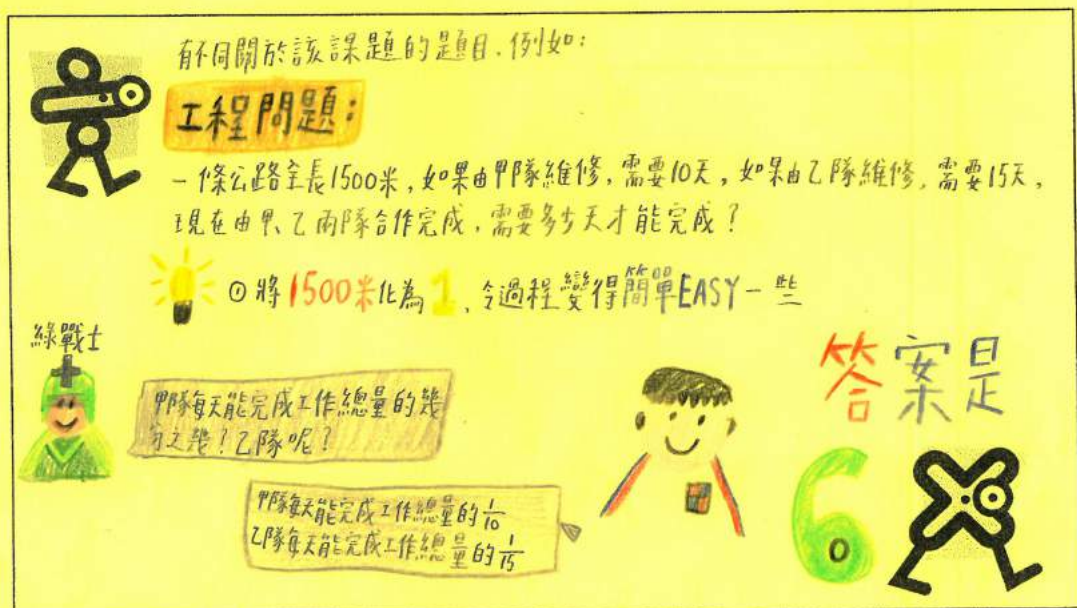 有不同關於該課題的題目,例如:
工程問題:
一條公路全長1500米,如果由甲隊維修,需要10天,如果由乙隊維修,需要15天,
現在由甲、乙兩隊合作完成,需要多少天才能完成?
①將1500米化為1,令過程變得簡單EASY一些
綠戰士
甲隊每天能完成工作總量的幾
分之幾?乙隊呢?
甲隊每天能完成工作總量的1/10
乙隊每天能完成工作總量的1/15
答案是
6